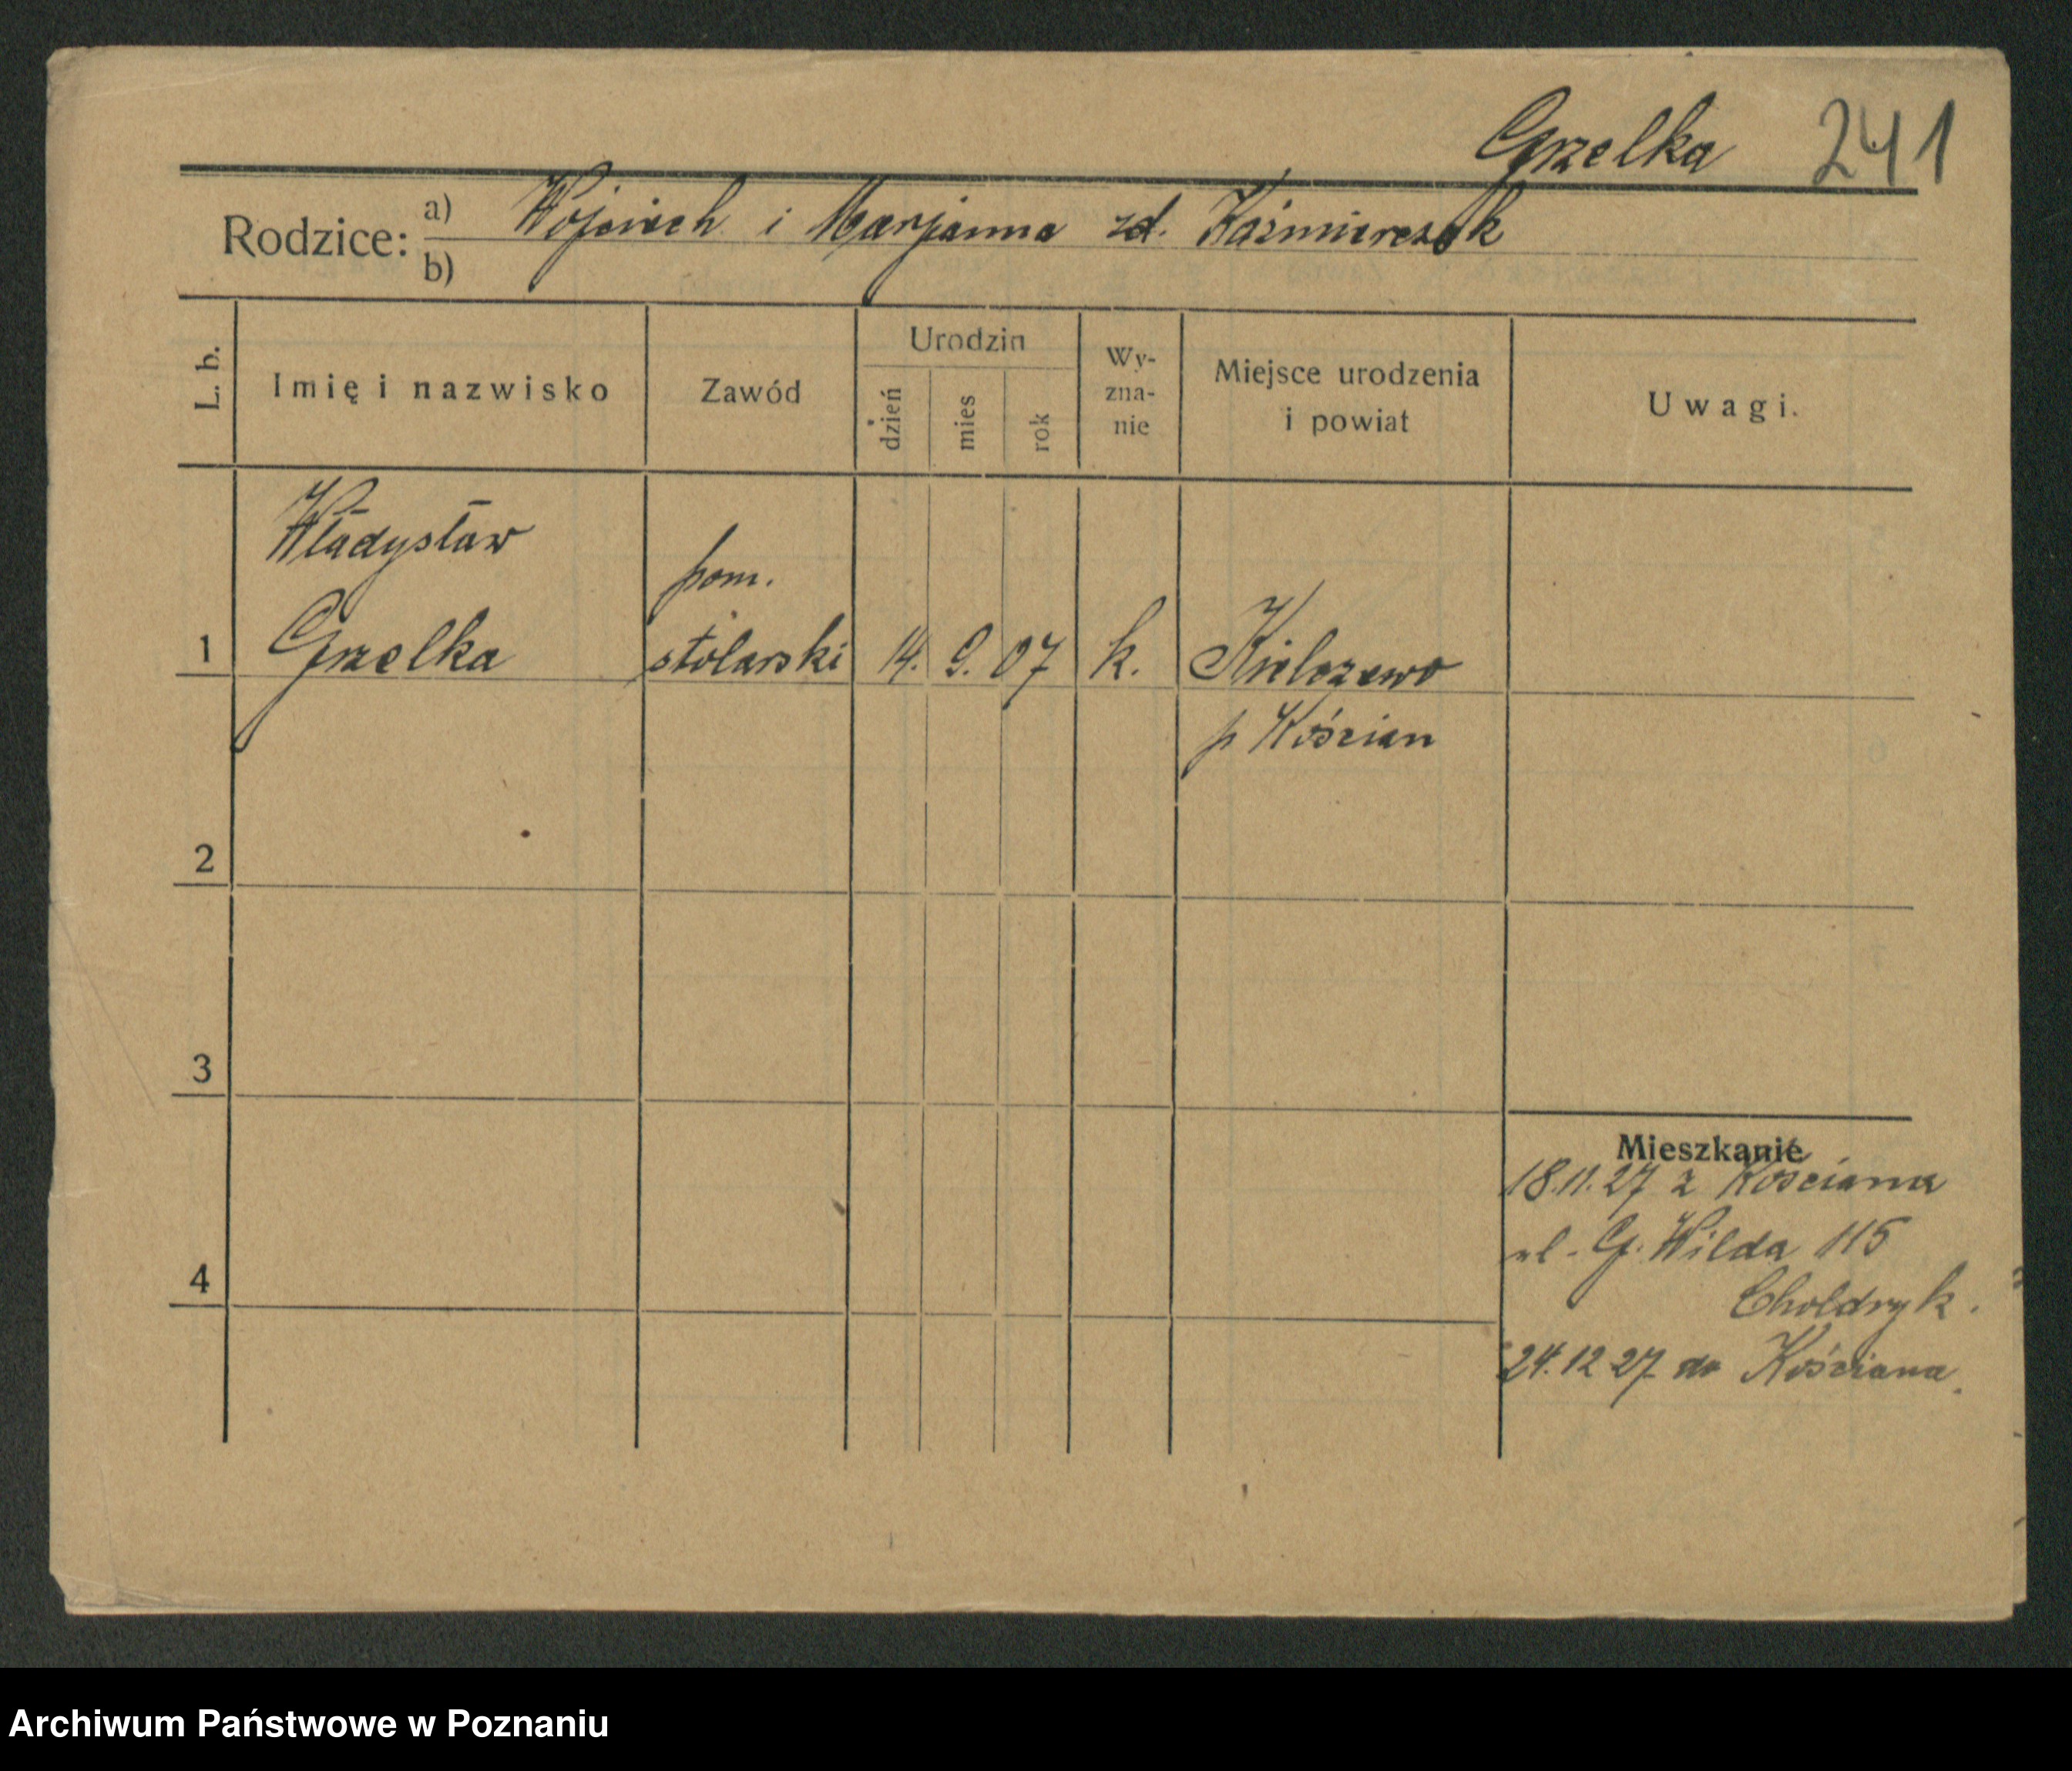 Grzelka 241
Rodzice: a) Wojciech i Marjanna zd. Kaźmierczak
b)
L. b.
Imię i nazwisko
Zawód
Urodzin
dzień
mies
rok
Wy-
zna-
nie
Miejsce urodzenia
i powiat
Uwagi.
Władysław
pom.
1 Grzelka stolarski 14. 9. 07 k. Kiełczewo
p Kościan
2
3
4
Mieszkanie
18.11.27 z Kościana
ul. G. Wilda 115
Choldryk.
24.12 27 do Kościana.
Archiwum Państwowe w Poznaniu